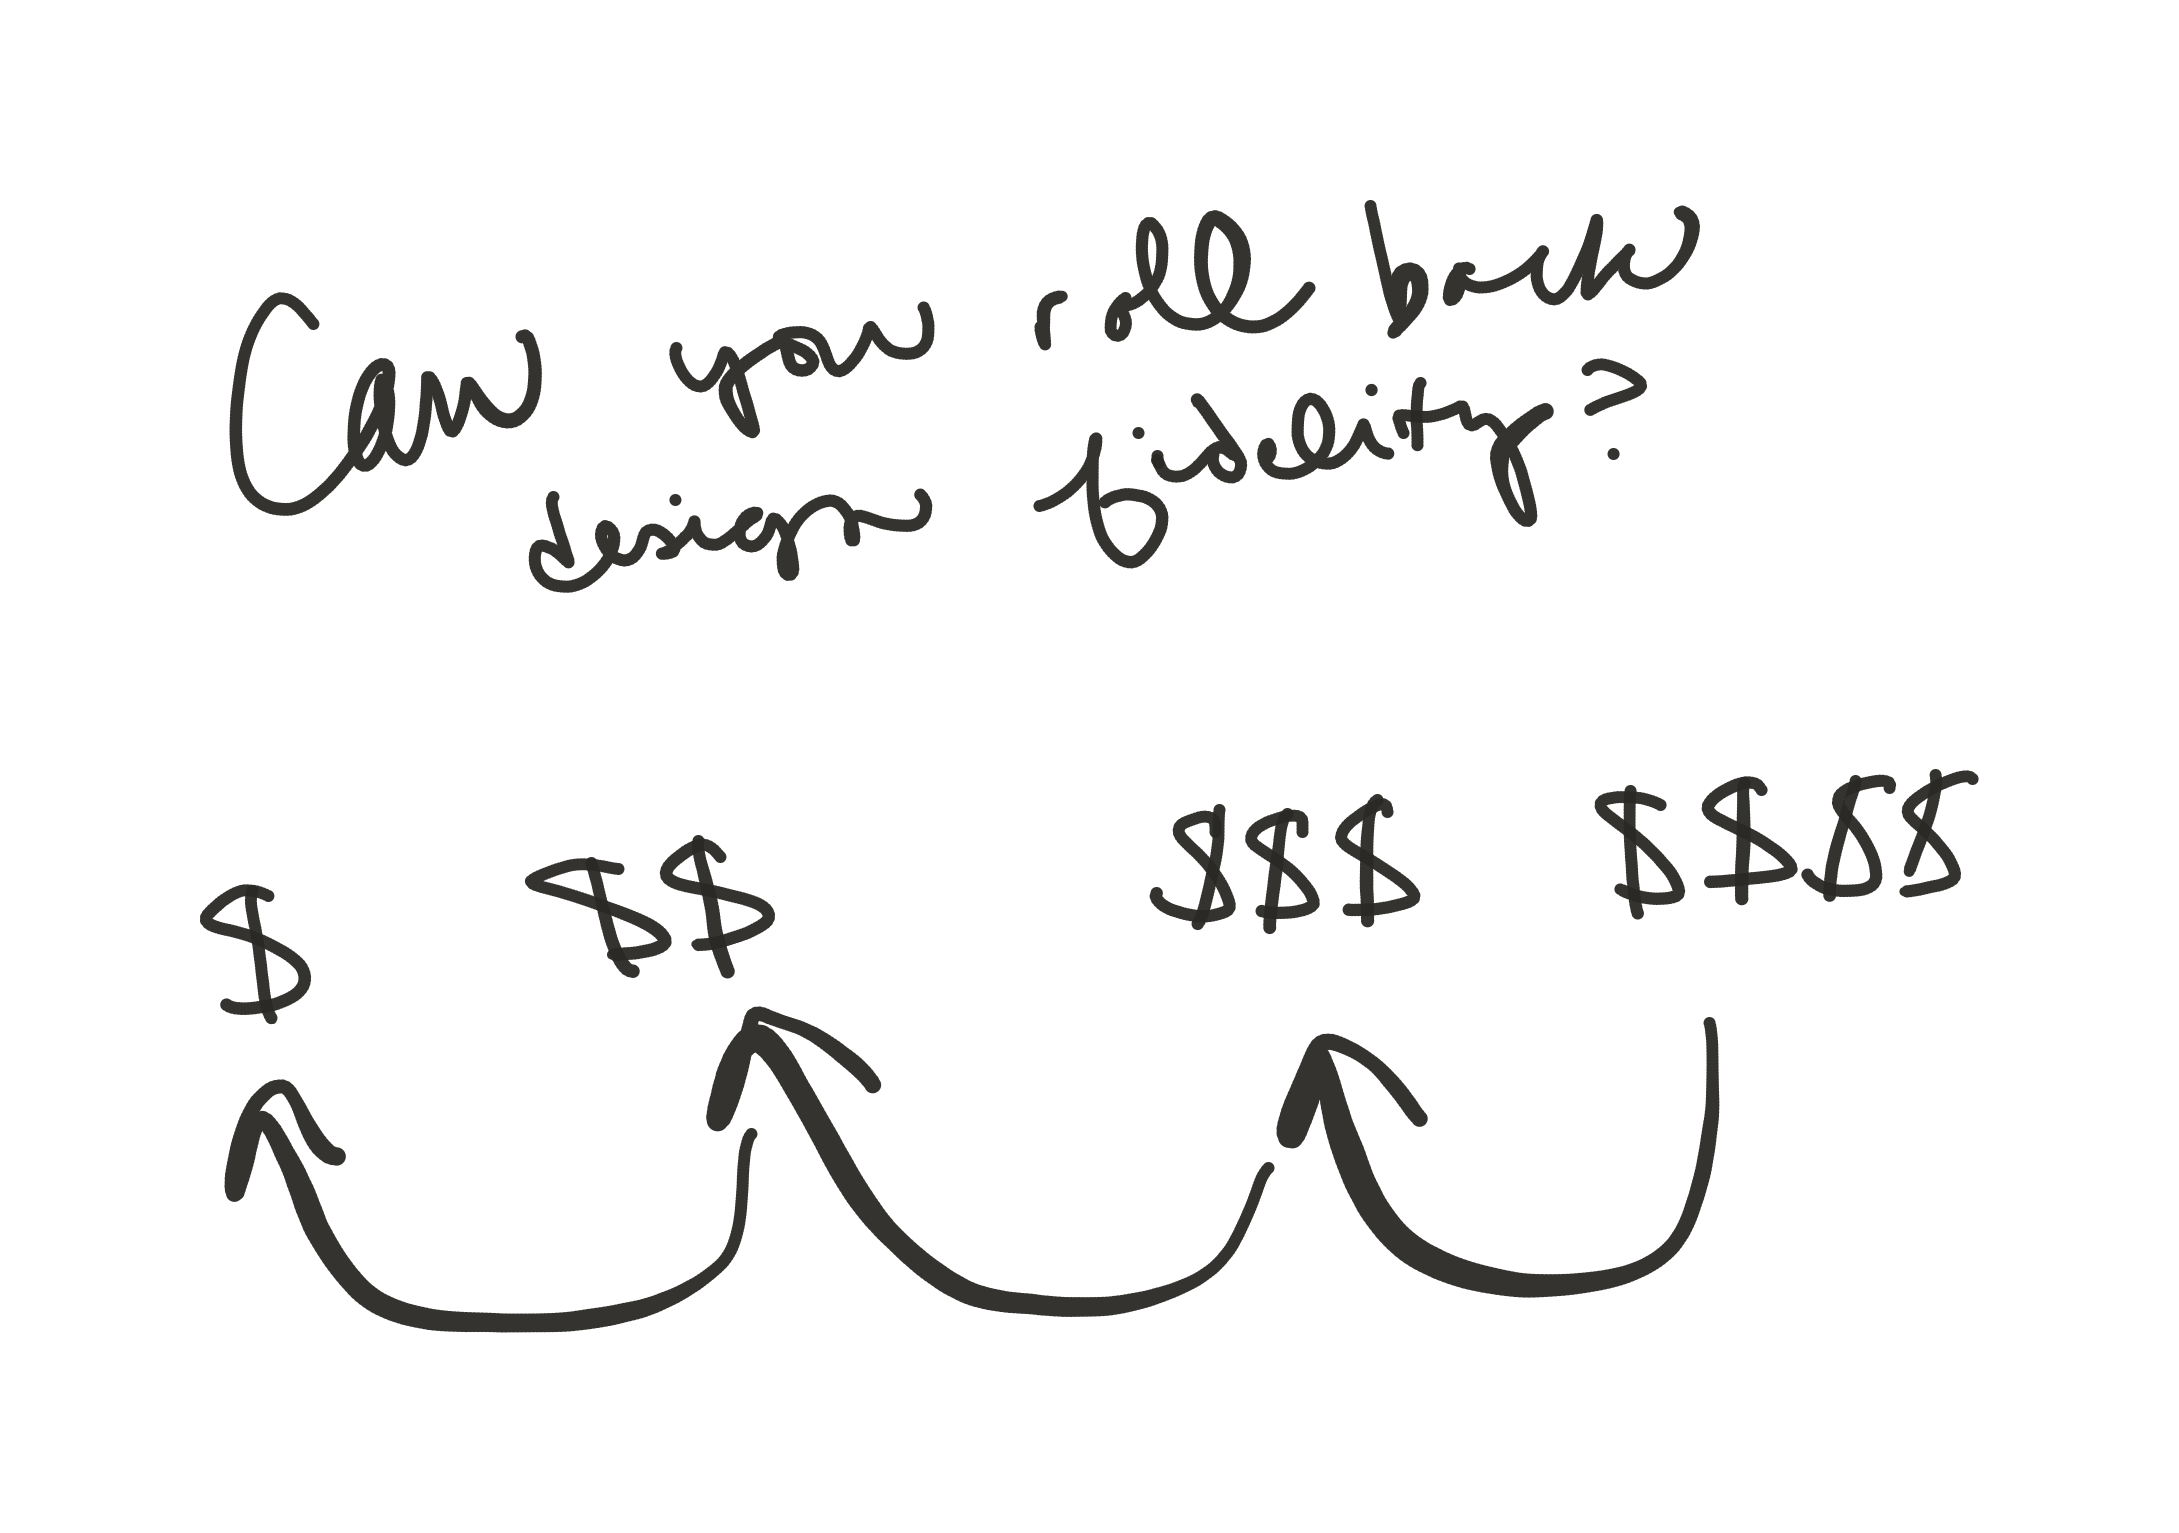 Can you roll back
design fidelity?
$ $$ $$$ $$$$